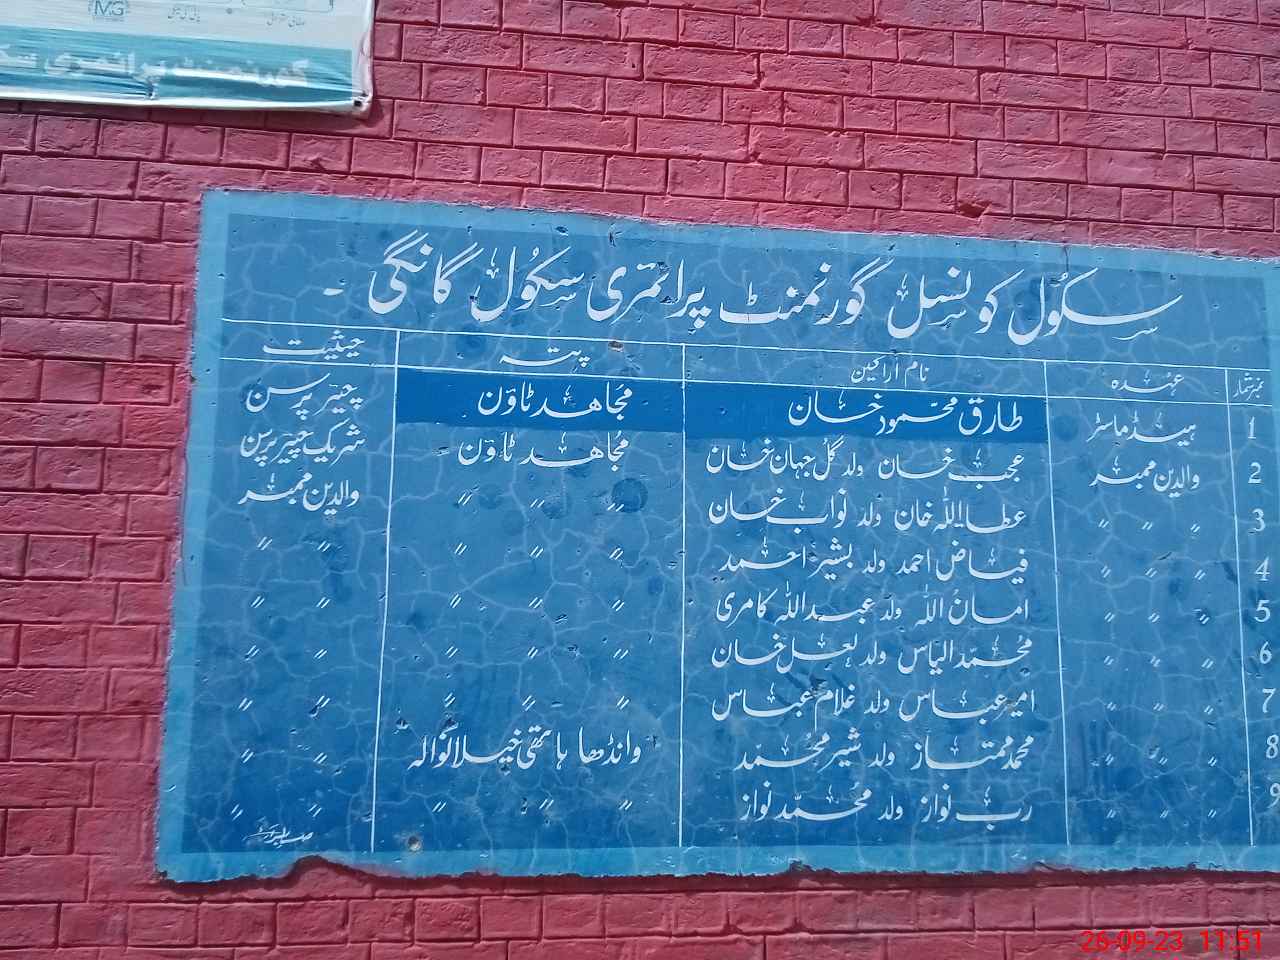 MG
گورنمنٹ پرائمری
سکول کونسل گورنمنٹ پرائمری سکول گانگی ۔
نمبرشمار عہدہ نام اراکین پتہ حیثیت
1 ہیڈ ماسٹر طارق محمود خان مجاھد ٹاؤن چیئرپرسن
2 والدین ممبر عجب خان ولد گل جہان خان مجاھد ٹاؤن شریک چیئرپرسن
3 〃 〃 〃 عطاءاللہ خان ولد نواب خان 〃 〃 〃 والدین ممبر
4 〃 〃 〃 فیاض احمد ولد بشیر احمد 〃 〃 〃 〃 〃
5 〃 〃 〃 امان اللہ ولد عبداللہ کامری 〃 〃 〃 〃 〃
6 〃 〃 〃 محمد الیاس ولد لعل خان 〃 〃 〃 〃 〃
7 〃 〃 〃 امیر عباس ولد غلام عباس 〃 〃 〃 〃 〃
8 〃 〃 〃 محمد ممتاز ولد شیر محمد وانڈھا ہاتھی خیلانوالہ 〃 〃
9 〃 〃 〃 رب نواز ولد محمد نواز 〃 〃 〃 〃 〃
26-09-23 11:51